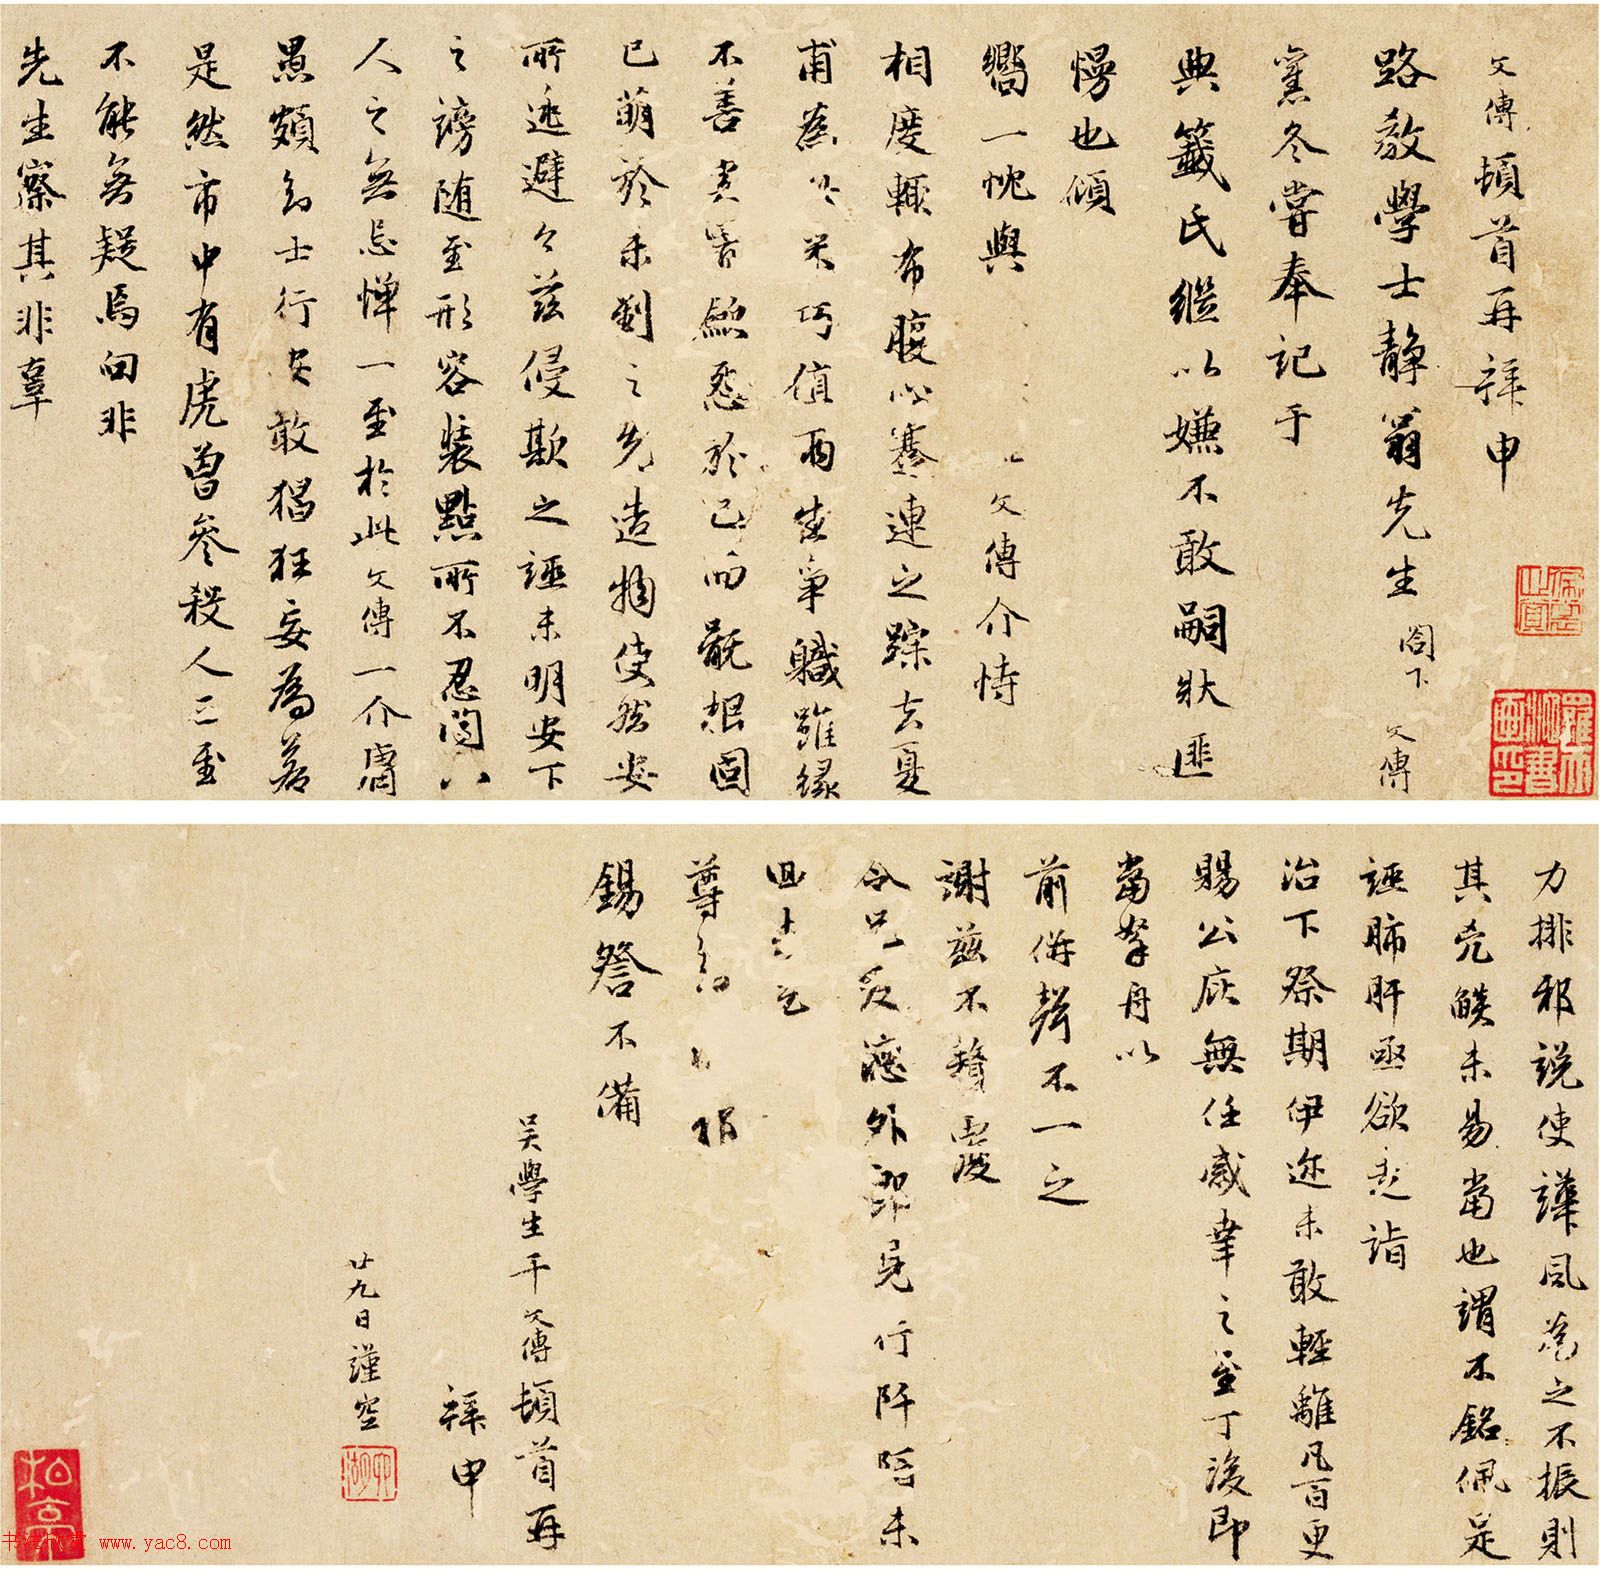 文傳頓首再拜申
路教學士靜翁先生閤下文傳
舊冬嘗奉記于
典籤氏繼以嫌不敢嗣狀匪
慢也傾
嚮一忱與文傳介恃
相度輒布腹心蹇連之蹤去夏
甫為米巧值兩造爭職雖緣
不善其害歛怨於己而釁根固
已萌於未到之先造物使然安
所逃避今茲侵欺之誣未明安下
之謗随至形容裝點所不忍聞以
人之無忌憚一至於此文傳一介庸
愚頗知士行安敢猖狂妄為若
是然市中有虎曾參殺人三至
不能無疑焉向非
先生察其非辜
力排邪說使譁風為之不振則
其兜鍭未易當也謂不銘佩是
誣肺肝亟欲走詣
治下祭期伊迩未敢輕離凡百更
賜公庇無任感幸之至丁後即
當拏舟以
前併聲不一之
謝茲不贅
令兄
外郎兄行阡陌未
回
尊
錫答不備
吴學生干文傳頓首再
拜申
廿九日謹空
書法欣賞 www.yac8.com